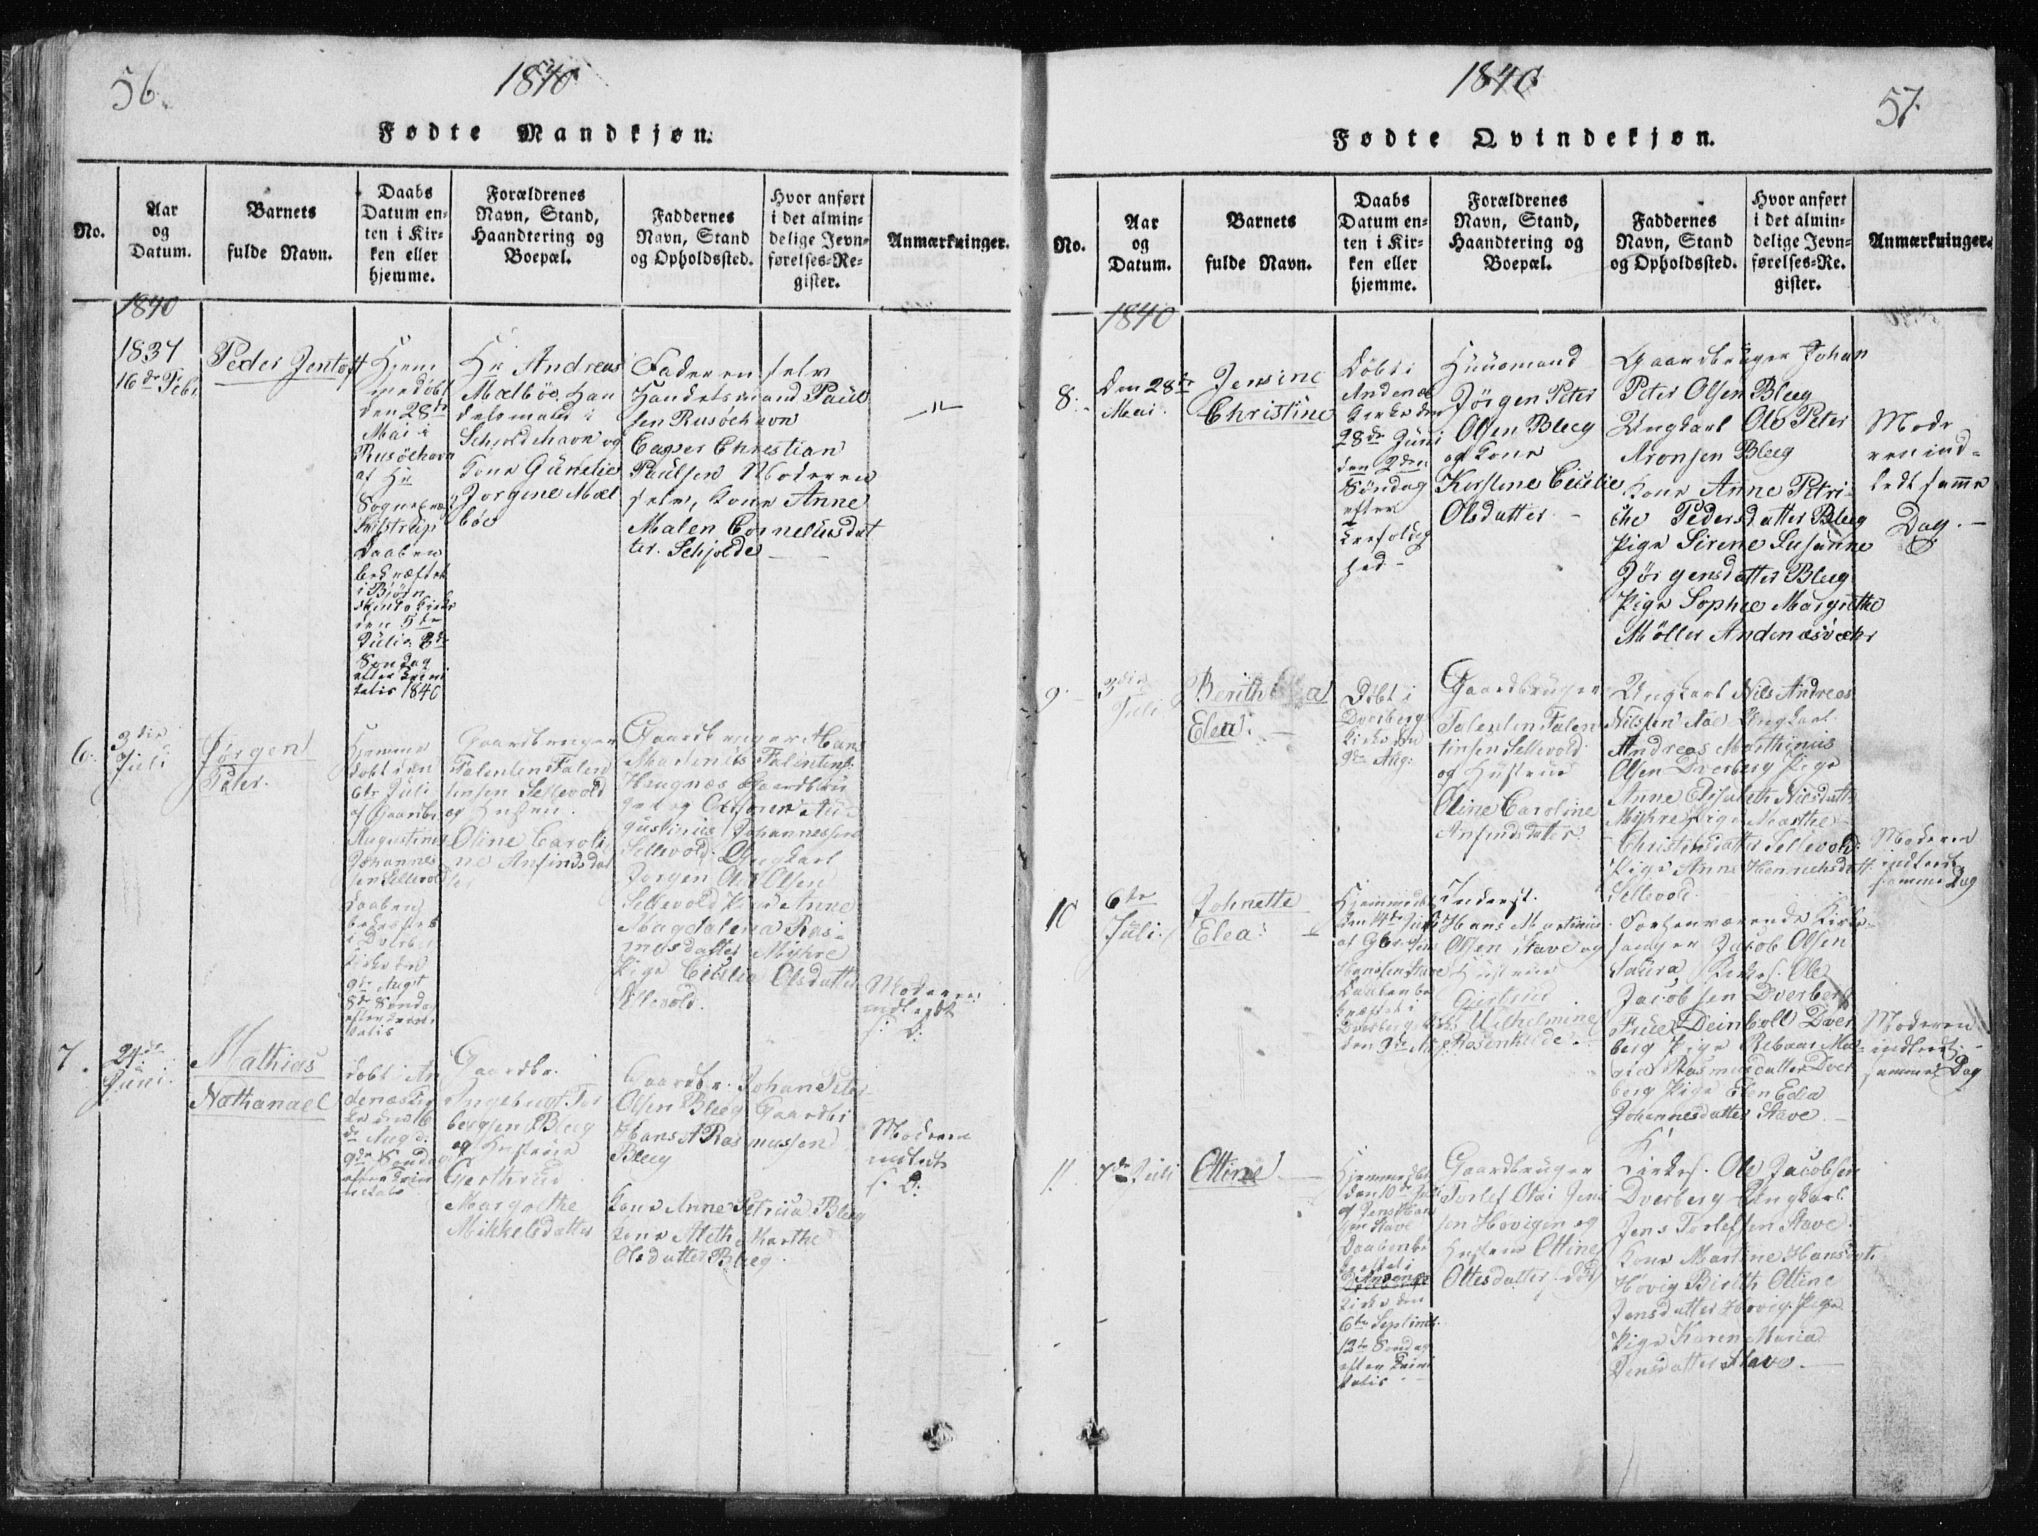 56.
1840
Fødte Mandkjøn.
No.
Aar
og
Datum.
Barnets
fulde Navn.
Daabs
Datum en-
ten i Kir-
ken eller
hjemme.
Forældrenes
Navn, Stand,
Haandtering og
Boepæl.
Faddernes
Navn, Stand
og Opholdssted.
Hvor anført
i det almin-
delige Jevn-
førelses-Re-
gister.
Anmærkninger.
1840
1837
16de Febr
Peder Jentoft
Hjem
medøbt
den 28de
Mai i
Rusøehavn
af Hr
Sognepræst
Daaben
bekræftet
i Bjørn
skinds Kirke
den 5te
Juli
Søndag
efter Trini
tatis 1840
Hr Andreas
Mælböe Han
delsmand i
Schjoldehavn og
Kone Gunelie
Jorgine Mæl
böe
Faderen selv
Handelsmand Paul
sen Rusøehavn
Casper Christian
Paulsen Moderen
selv, Kone Anne
Malen Corneliusdat
ter. Schjolde
6.
3die
Juli
Jørgen
Peter.
Hjemme
døbt den
6te Juli
af Gaardbr
Augustinus
Johannes
sen Sellevold
Daaben
bekræftet
i Dverb
Kirke den
9de Augst
8de Søndag
efter Trini
tatis
Gaardbruger
Falentin Falen
tinsen Sellevold
og Hustru
Oline Caroli
ne Anfindsdat
ter
Gaardbruger Hans
Martinus Falentins
Haugnæs Gaardbru
ger og Au
gustinus Johannessen
Sellevold. Ungkarl
Jørgen Olsen
Sellevold Pige Anne
Magdalena Ras-
musdatter Myhre
Pige Cicelia Olsdatter
Sellevold.
Moderen
indledt
s: D:
7.
24de
Juni
Mathias
Nathanael
døbt i An
denæs Kir
ke den 16
de Aug d.
9de Søndag
efter Trini
tatis
Gaardbr.
Ingebrigt Tor
bergsen Bleeg
og Hustrue
Gerthrud
Margrethe
Mikkelsdatter
Gaardbr. Johan Peter
Olsen Bleeg Gaardbr
Hans A Rasmussen
Bleeg
Kone Anne Petrica Bleeg
Kone Aleth Marthe
Olsdatter Bleeg.
Moderen
indledt
s: D:
1840
57.
Fødte Qvindekjøn.
No.
Aar
og
Datum.
Barnets
fulde Navn.
Daabs
Datum en-
ten i Kir-
ken eller
hjemme.
Forældrenes
Navn, Stand,
Haandtering og
Boepæl.
Faddernes
Navn, Stand
og Opholdssted.
Hvor anført
i det almin-
delige Jevn-
førelses-Re-
gister.
Anmærkninger.
1840
8.
Den 28de
Mai.
Jensine
Christine
Døbt i
Andenæs
Kirke den
28de Juni
den 2den
Søndag
efter
Treefoldig
hed -
Huusmand
Jørgen Peter
Olsen Bleeg
og Kone
Kirstine Cicilie
Olsdatter -
Gaardbruger Johan
Peter Olsen Bleeg
Ungkarl Ole Peter
Aronsen Bleeg
Kone Anne Petri-
che Pedersdatter Bleeg
Pige Sirene Susanne
Jørgensdatter Bleeg
Pige Sophie Margrethe
Möller Andenæsvæhr
Mode
ren ind-
ledt samme
Dag. -
9.
3die
Juli
Berith
Elea. -
Døbt i
Dverberg
Kirke den
9de Aug:
Gaardbruger
Falentin Falen
tinsen Sellevold
og Hustrue
Oline Caroline
Anfindsdatter
Ungkarl Nils Andreas
Nilssen Aae Ungkarl.
Andreas Marthinius
Olsen Dverberg Pige
Anne Elisabeth Nilsdatter
Myhre Pige Marthe
Christensdatter Sellevold:
Pige Anne Henrichsdatt
Sellevold.
Moderen
indledt
samme Dag
10
6te
Juli.
Johnette
Elea:
Hjemmedøbt
den 14de Juli
af
Hansen Stave
Daaben be
kræftet i
Dverbergs Kirke
den 9de Aug
Inderst.
Hans Martinus
Olsen Stave og
Hustrue
Giertrud
Wilhelmine
Rosenhilde.
Forhenværende Kirke
sanger Jacob Olsen
Saura, Kirkes. Ole
Jacobsen Dverberg
Frue Deinboll Dver
berg Pige Rebecca Ma
ria Rasmusdatter Dver
berg Pige Elen Edea
Johannesdatter Stave. -
Moderen
indledt
samme Dag
11.
7de Juli
Ottine
Hjemmedøbt
den 10de Juli
af Jens Han
sen Stave
Daaben be
kræftet i
Andenæs
Kirke den
6te Septbr.
12te Søndag
efter Trini
tatis
Gaardbruger
Torlef Olai Jens
sen Høvigen og
Hustrue Ottine
Ottesdatter
Kirkes. Ole Jacobsen
Dverberg Ungkarl.
Jens Torlefsen Stave.
Kone Martine Hansdatt
Høvig Birith Ottine
Jensdatter Høvig. Pige
Pige Karen Maria
Jensdatter Stave. -